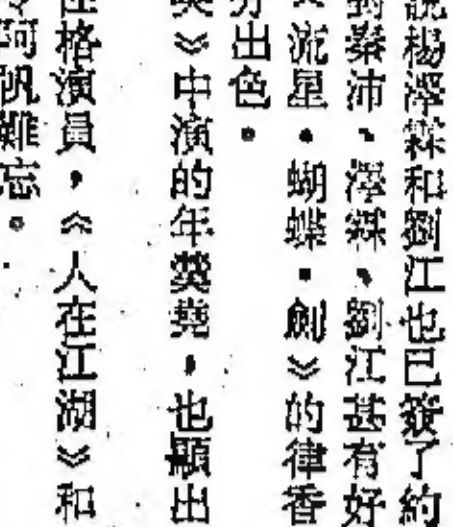 說楊澤霖和劉江也已簽了約
對秦沛、澤霖、劉江甚有好
《流星·蝴蝶·劍》的律香
分出色。
》中演的年羹堯,也顯出
性格演員,《人在江湖》和
令阿帆難忘。